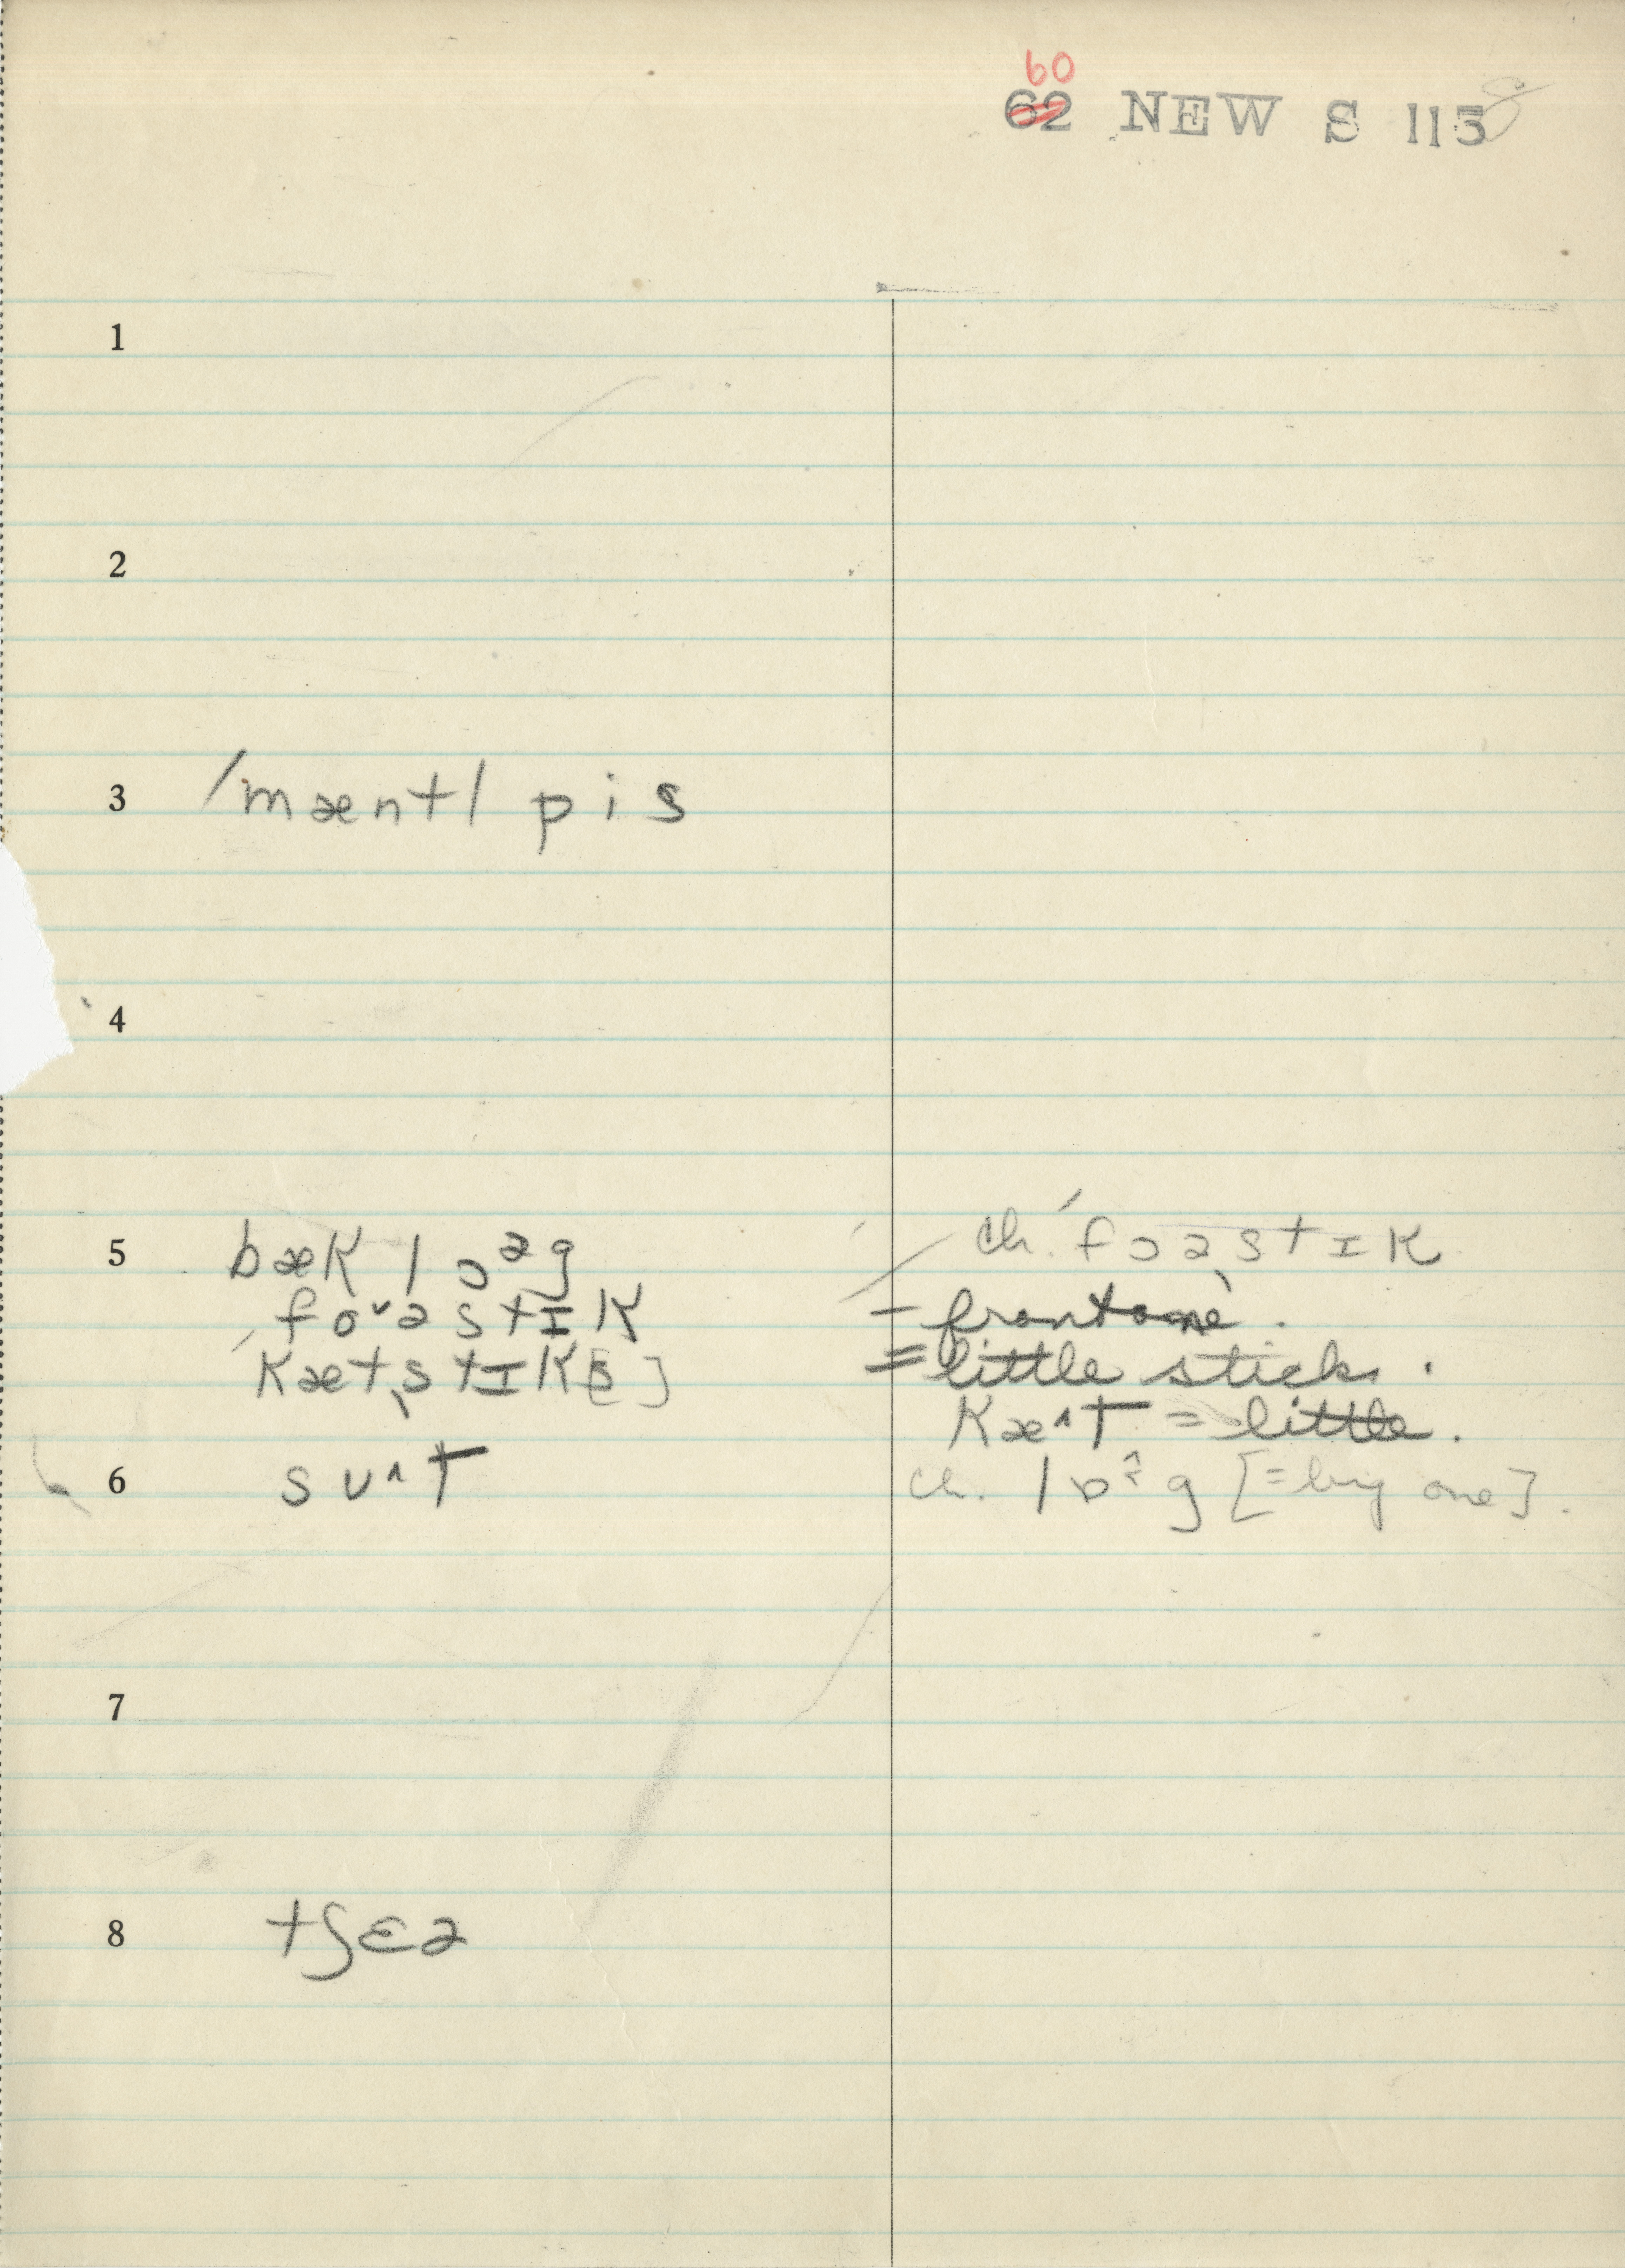 60
62 NEW S 115
1
2
3 /mæntl pis
4
5 bæk lɔᵊg
foˇəstɪk
kæt,stɪk[s]
ch. ′fɔə,stɪk
– front one.
= little stick.
Kæ^T = little.
6 sʊ^T
ch. lɒᵊg [= big one].
7
8 tʃɛə